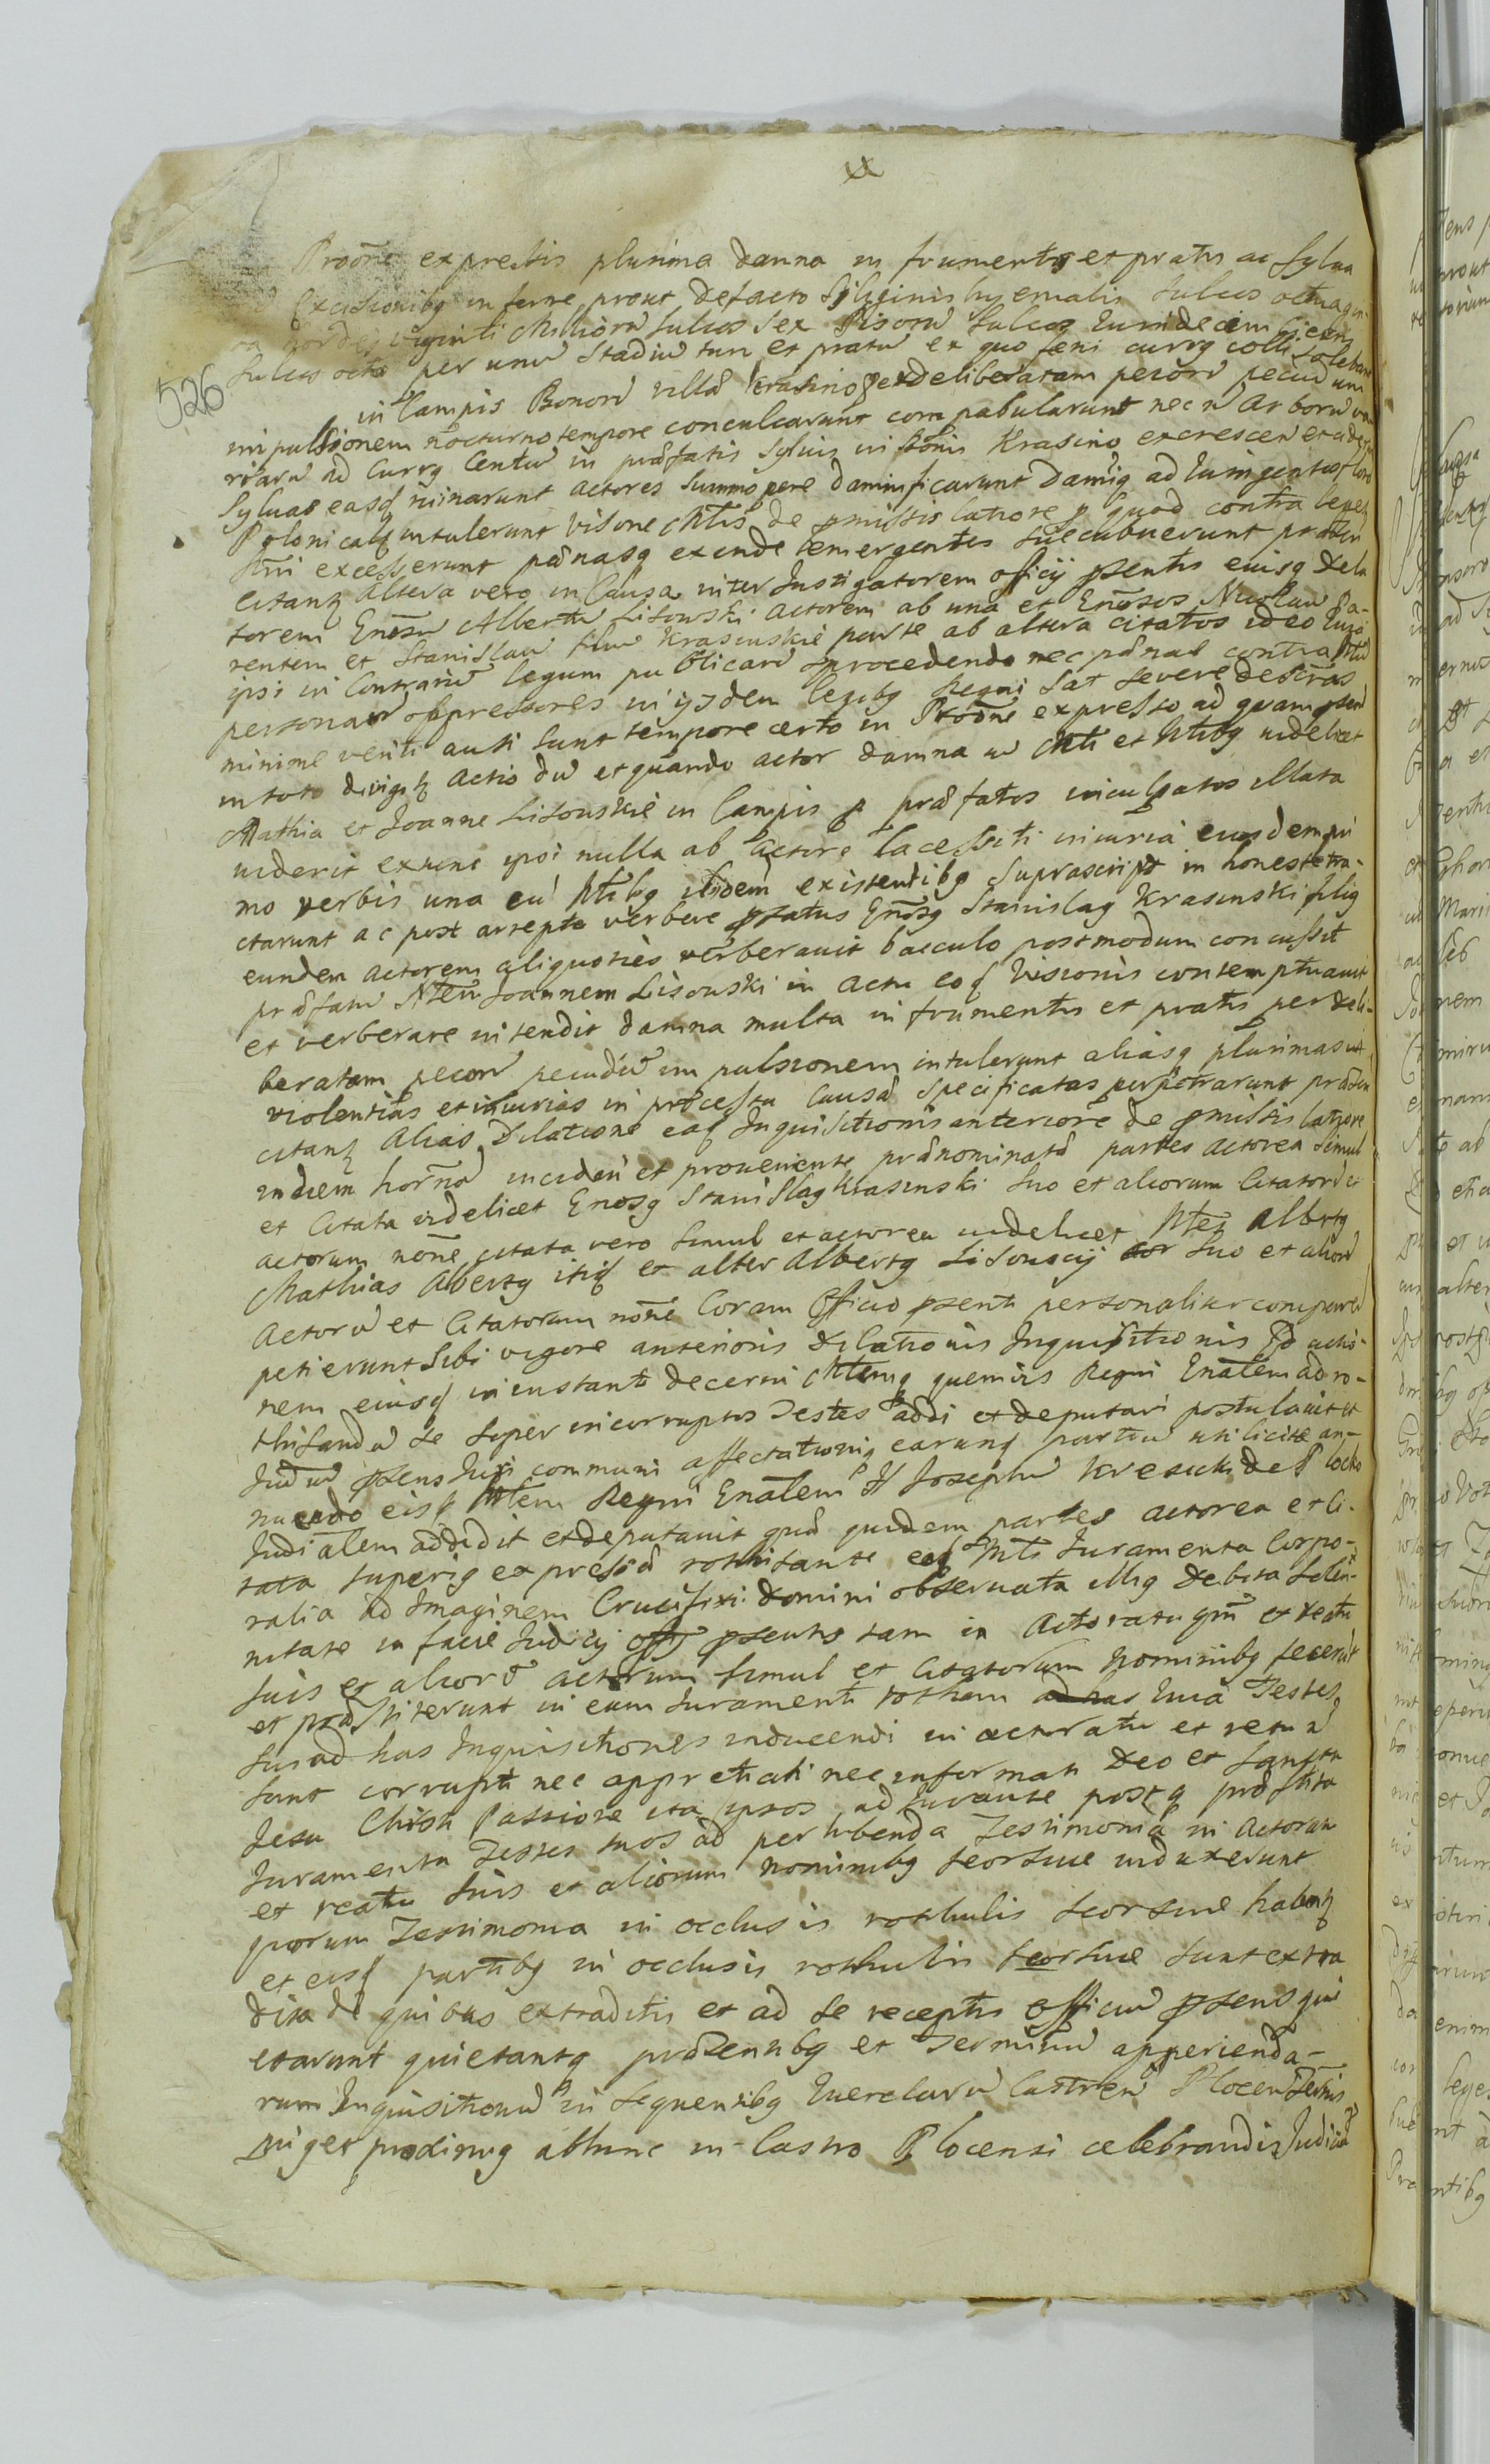 Proōne expressis plurima damna in frumentis et pratis ac sylua
Excisionibg inferre prout defacto Siliginis hyemalis sulcos octuagin
ra hordej viginti Milliorū sulcos sex Pisorū sulcos Quindecim
526
sulcos octo per unū stadiū tum et pratū ex quo feni currg colli solebant
in Campis Bonorū villæ Krasino perdeliberatam pecorū pecud um
impulsionem nocturno tempore conculcarunt compabularunt nec n̄ Arborū va
riarū ad Currg Centū in præfatis Syluis in Bonis Krasino excrescen
Syluas easq ruinarunt actores summopere damnificarunt Damūq ad Quingentos flor
Polonicalz intulerunt Visione Mtis de pmissis latiore p quod contra leges
Rni excesserunt pænasq exinde emergentes succubuerunt
Citanz Altera vero in Causa inter Instigatorem officij psentis eiusq dela
torem Enosū Albertū Lisowski actorem ab una et Enosos Nicolaū Pa-
rentem et Stanislaū filiū Krasinskie parte ab altera citatos ideo quia
ipsi in Contrariū legum publicarū procedendo nec pænas contra
personarū oppressores in ijsdem legibg Regni sat severe descrās
minime veriti ausi sunt tempore certo in Proōne expresso ad quam psen
in toto dirigit actio dū et quando actor damna cū Mtī et Ntibg videlicet
Mathia et Joanne Lisouskie in Campis p præfatos inculpatos illata
uiderit extunc ipsi nulla ab Actore lacessiti iniuria eundem pri
mo verbis una cū Ntibg ibidem existentibg suprascript inhoneste tra-
ctarunt ac post arrepto verbere pfatus Enosg Stanislag Krasinski filig
eundem actorem aliquoties verberauit baculo postmodum concussit
præfatū Nlem Joannem Lisouski in actu eoq Visionis contemptuauit
et verberare intendit damna multa in frumentis et pratis per deli-
beratam pecorū pecudū impulsionem intulerunt aliasq plurimas
violentias et iniurias in processu causæ specificatas perpetrarunt
citanz Alias Dilatione eaq Inquisitionis anteriore de pmissis latiore
indiem hornā inciden et proueniente prænominatæ partes actorea simul
et Citata videlicet Enosg Stanislag Krasinski suo et aliorum Citatorū et
actorum nōne citata vero simul et actorea videlicet Ntes Albertg
Mathias Albertg itiq et alter Albertg Lisouscij suo et aliorū
Actorū et Citatorum nōne Coram Officio psenti personaliter comparen
petierunt sibi vigore anterioris dilationis Inquisitionis ad actio-
nem eiusq in instanti decerni Mtemq quemvis Regni Enalem ad ro-
thisandū se super incorruptos Testes addi et deputari postulauit et
Judiū psens Juri communi affectationiq earunq partiū utilicite an-
nuendo eisq Mtem Regni Enalem H Josephū Kresicki de Plocko
Judialem addidit et deputauit quæ quidem partes actorea et Ci-
tata superig expressæ rothisante eoq Mti Juramenta Corpo-
ralia ad Imaginem Crucifixi Domini obseruata illiq debita solen-
nitate in facie Judicij psentis tam in Actoratu qm̄ et reatu
suis et aliorū actorum simul et Citatorum nominibg fecerūt
et præstiterunt in eam Juramenti rotham ad has quia Testes
sui ad has Inquisitiones inducendi in actoratu et reatu n̄
sunt corrupti nec appretiati nec informati Deo et Sancta
Jesu Christi Passione ita ipsos adiuvante postq præstita
Juramenta Testes suos ad perhibenda Testimonia in Actoratu
et reatu suis et aliorum nominibg seorsiue induxerunt
quorum Testimonia in occlusis rothulis seorsiue habenz
et eisq partibg in occlusis rothulis seorsiue sunt extra
dita de quibus extraditis et ad se receptis officiū psens qui
etarunt quietantq præsentibg et Terminū apperienda-
rum Inquisitionū in sequentibg Querelarū Castren Plocen Termis
siue proximg abhinc in Castro Plocensi celebrandis Judicia